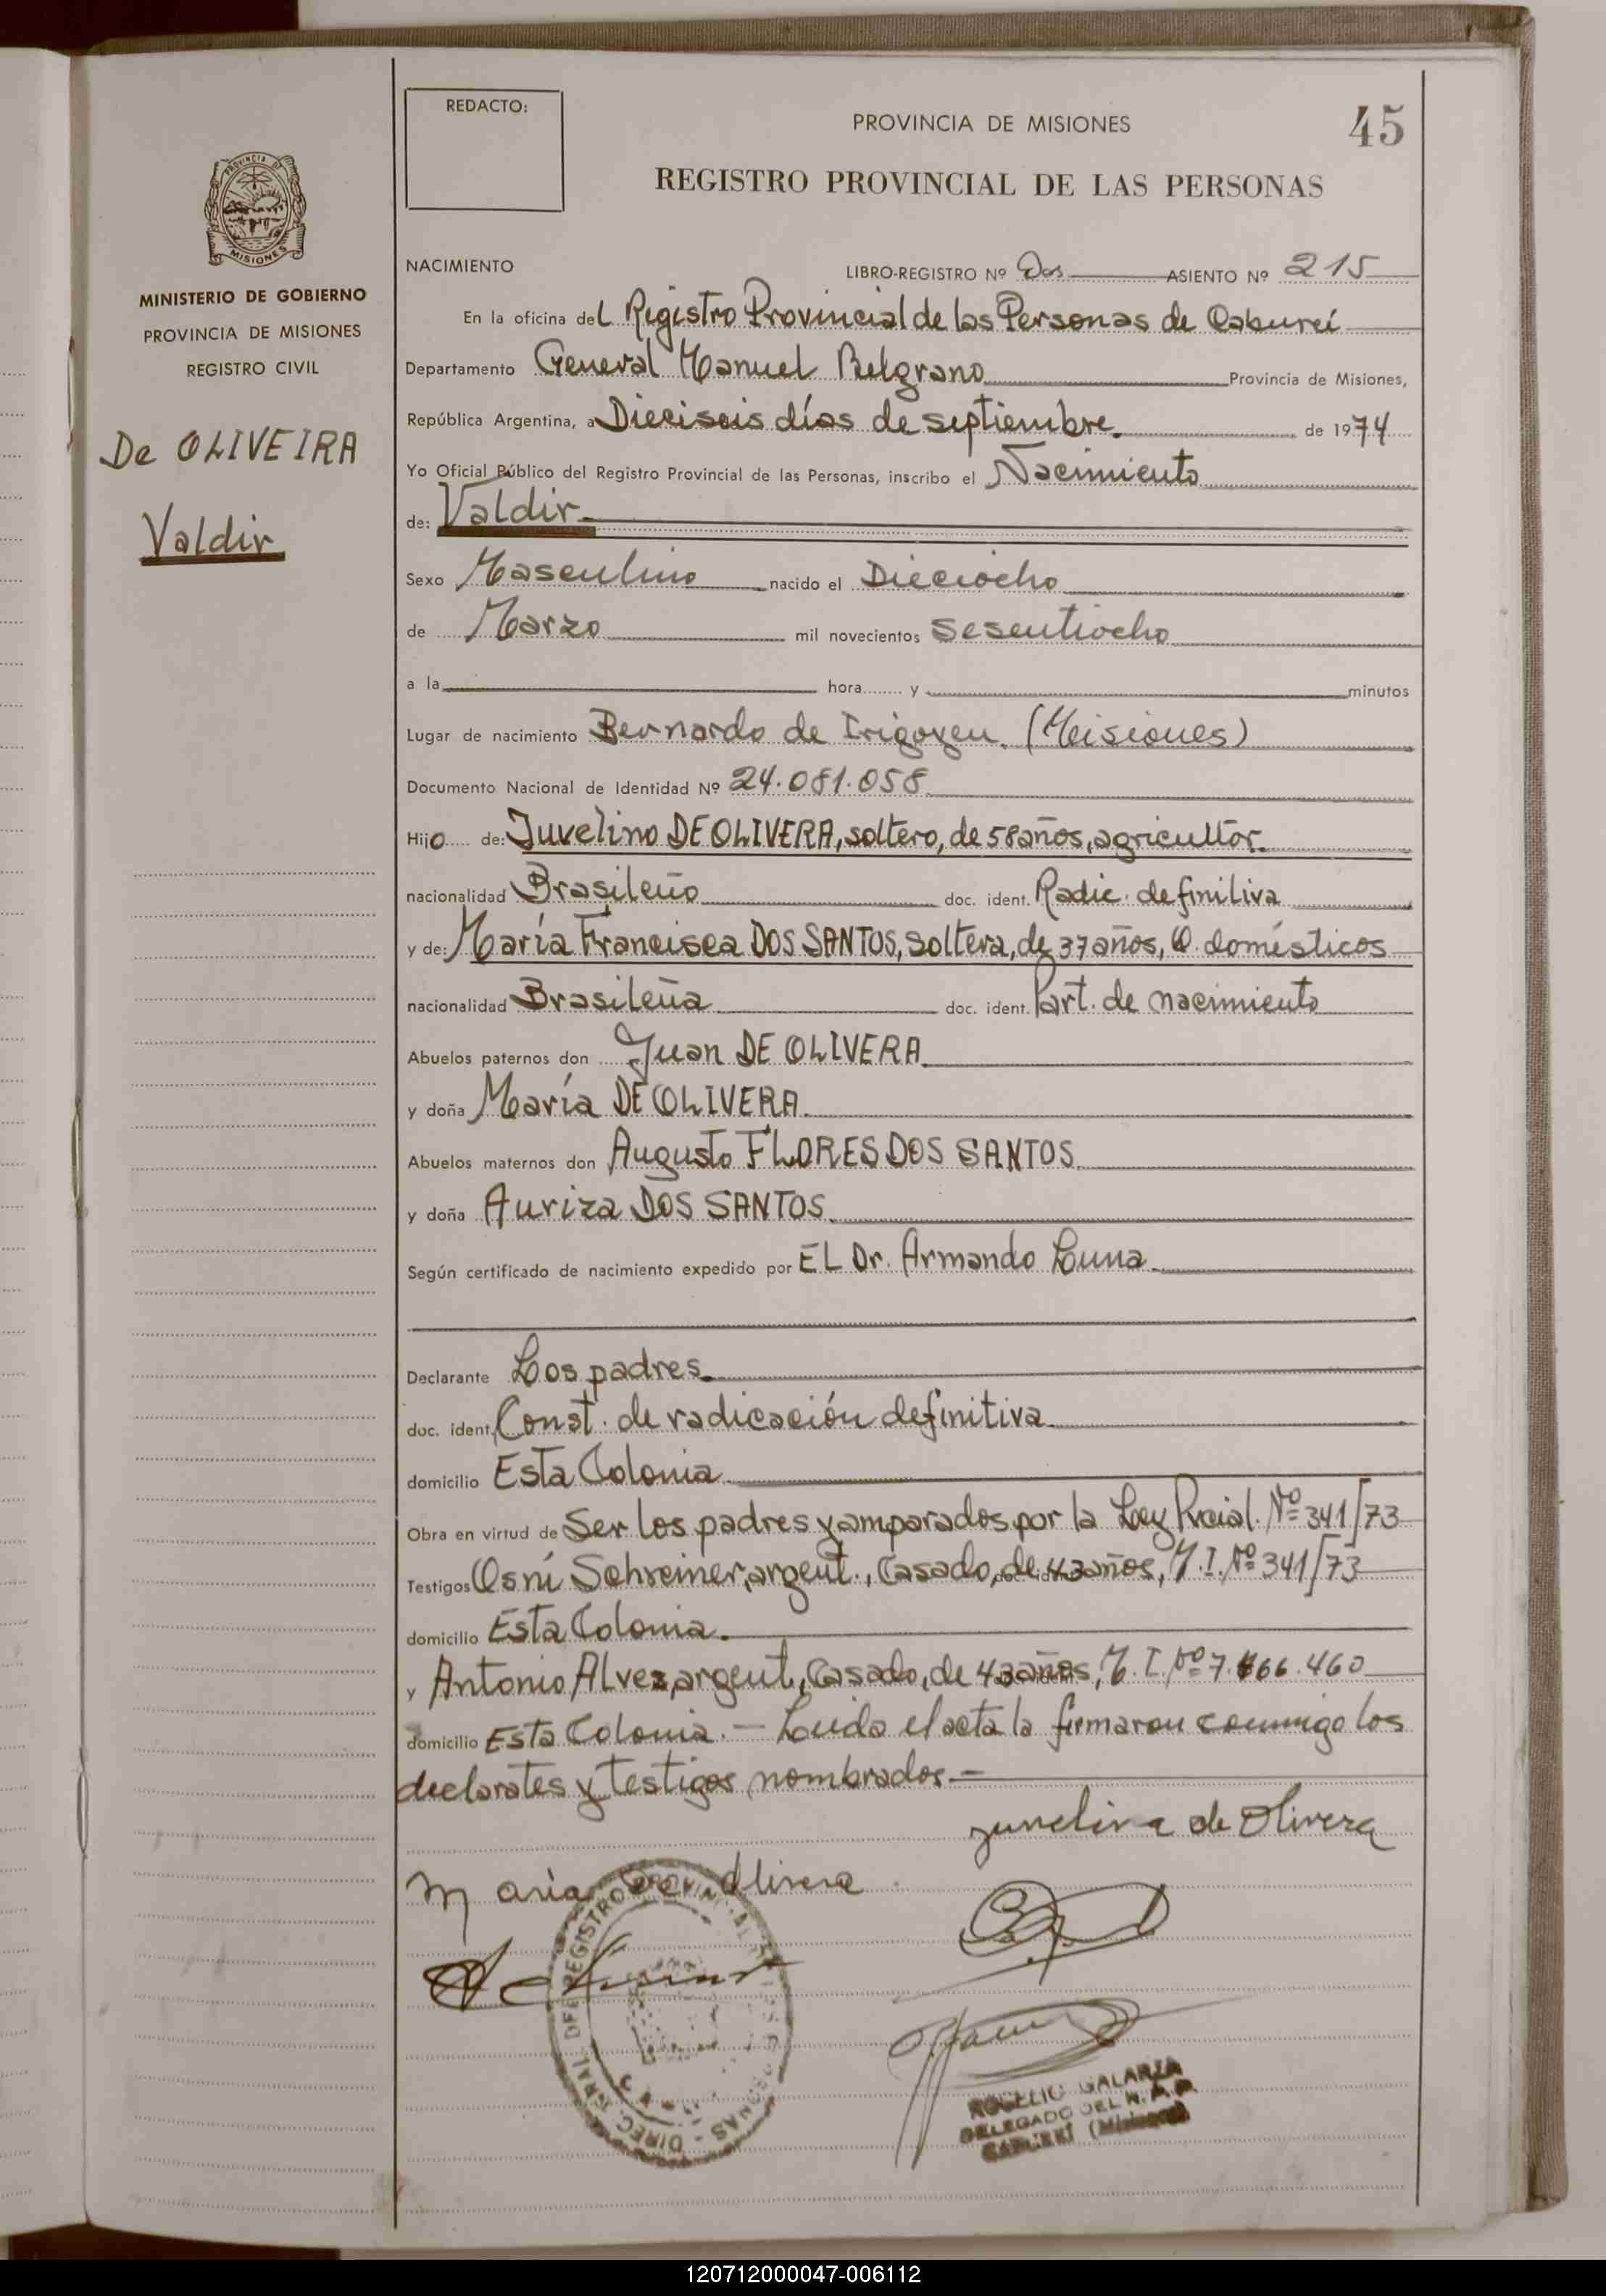 REDACTO:
PROVINCIA DE MISIONES
45
REGISTRO PROVINCIAL DE LAS PERSONAS
PROVINCIA DE
MISIONES
MINISTERIO DE GOBIERNO
PROVINCIA DE MISIONES
REGISTRO CIVIL
De OLIVEIRA
Valdir
NACIMIENTO LIBRO-REGISTRO Nº Dos ASIENTO Nº 215
En la oficina del Registro Provincial de las Personas de Caburei
Departamento General Manuel Belgrano Provincia de Misiones,
República Argentina, a Dieciseis días de septiembre. de 1974
Yo Oficial Público del Registro Provincial de las Personas, inscribo el Nacimiento
de: Valdir.
Sexo Masculino nacido el Dieciocho
de Marzo mil novecientos sesentiocho
a la hora y minutos
Lugar de nacimiento Bernardo de Irigoyen. (Misiones)
Documento Nacional de Identidad Nº 24.081.058
Hijo de: Juvelino DE OLIVERA, soltero, de 58 años, agricultor.
nacionalidad Brasileño doc. ident. Radic. definitiva
y de: María Francisca DOS SANTOS, soltera, de 37 años, Q. domésticos
nacionalidad Brasileña doc. ident. Part. de nacimiento
Abuelos paternos don Juan DE OLIVERA
y doña María DE OLIVERA.
Abuelos maternos don Augusto FLORES DOS SANTOS
y doña Auriza DOS SANTOS
Según certificado de nacimiento expedido por EL Dr. Armando Luna
Declarante Los padres.
doc. ident. Const. de radicación definitiva
domicilio Esta Colonia
Obra en virtud de Ser los padres y amparados por la Ley Prcial. Nº 341/73
Testigos Osní Schreiner, argent., Casado, de 43 años, M.I. Nº 341/73
domicilio Esta Colonia.
y Antonio Alvez, argent, Casado, de 43 años, M.I. Nº 7.466.460
domicilio Esta Colonia. — Leída el acta la firmaron conmigo los
declarates y testigos nombrados.—
juvelina de Olivera
Maria de Olivera
DIREC. GRAL. DE REGISTRO PROVINCIAL PERSONAS
ROGELIO GALARZA
DELEGADO DEL R.P.P.
CABUREI (Misiones)
120712000047-006112